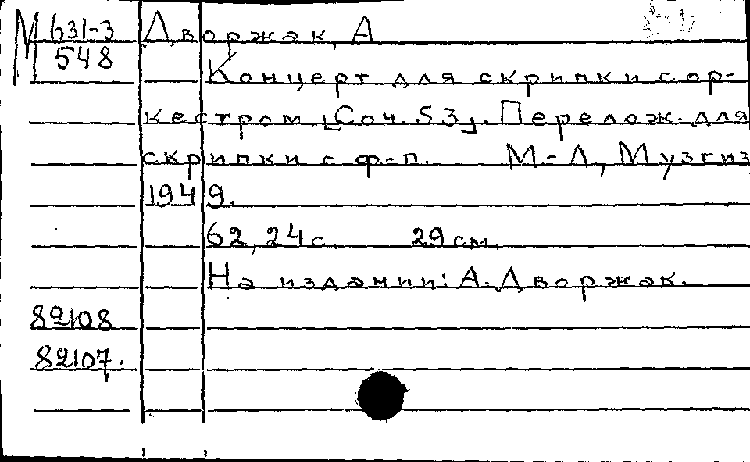 М 631-3
548
Дворжак, А
Концерт для скрипки с ор-
кестром [Соч. 53]. Перелож. для
скрипки с ф-п. М-Л, Музгиз
1949.
62, 24 с. 29 см.
На издании: А. Дворжак.
82108
82107.